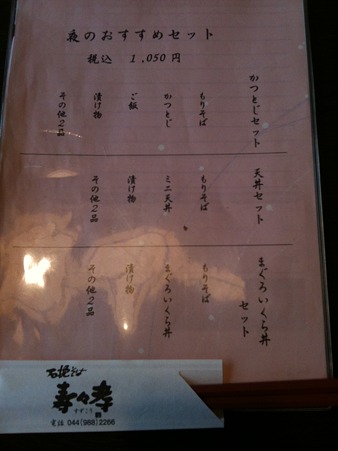 夜のおすすめセット
税込 1,050円
かつとじセット
もりそば
かつとじ
ご飯
漬け物
その他2品
天丼セット
もりそば
ミニ天丼
漬け物
その他2品
まぐろいくら丼
セット
もりそば
まぐろいくら丼
漬け物
その他2品
石挽そば
寿々孝
すずこう
電話 044(986)2266